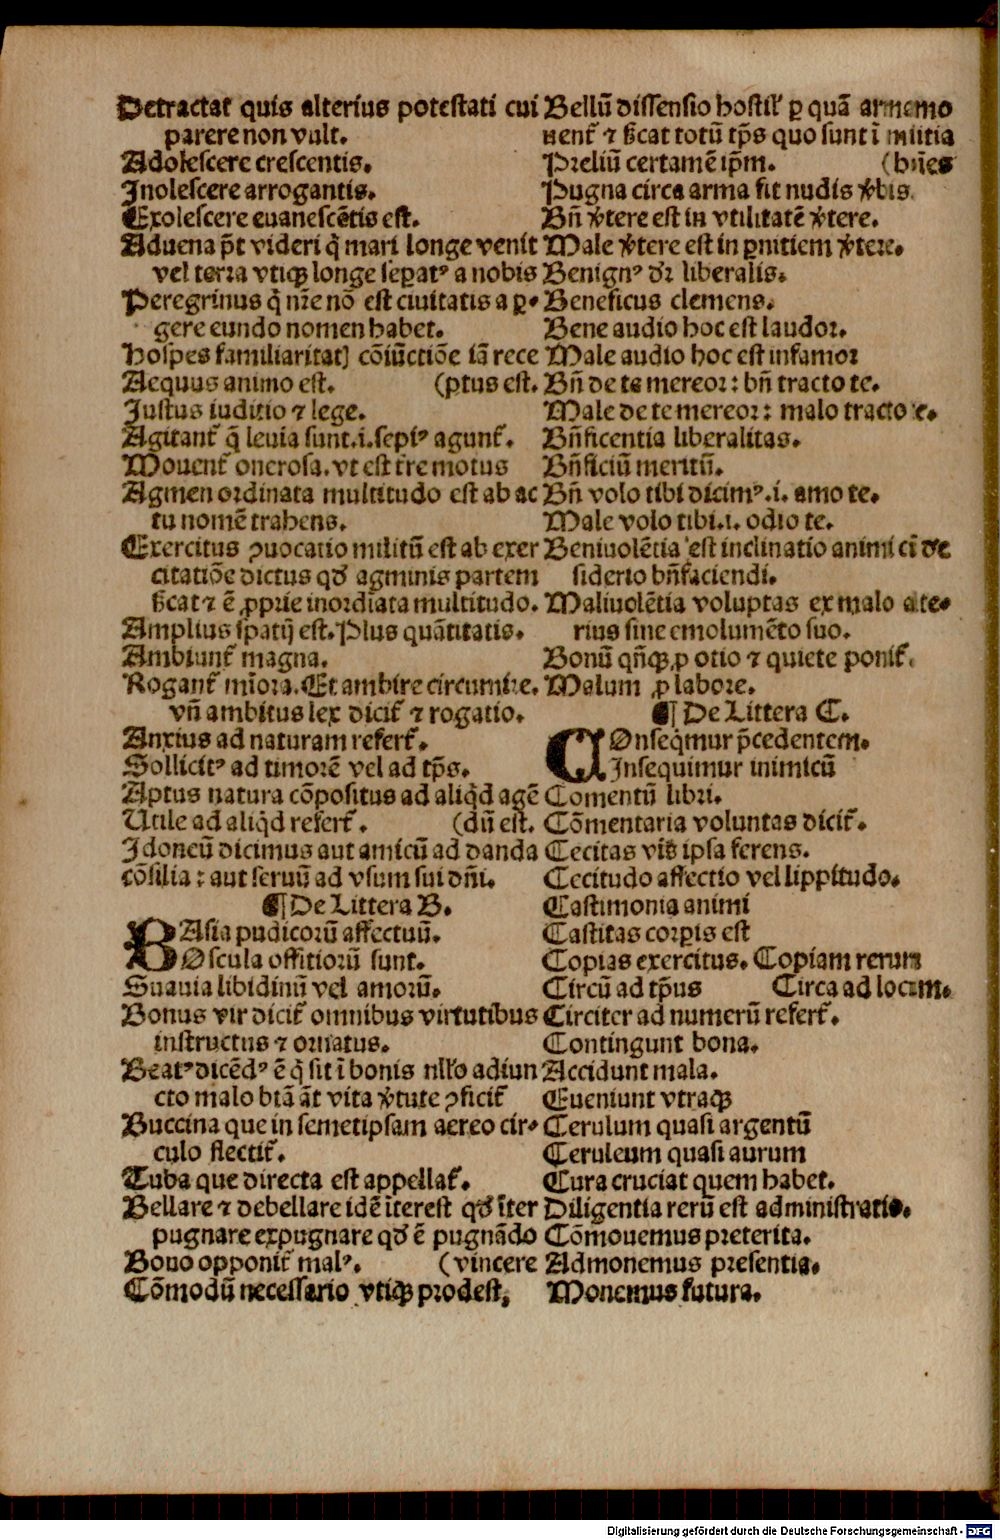 Detractat̃ quis alterius potestati cui
parere non vult.
Adolescere crescentis.
Inolescere arrogantis.
Exolescere euanescẽtis est.
Aduena pt̃ videri q̃ mari longe venit
vel terra vtiqꝫ longe seꝑatꝰ a nobis
Peregrinus q̃ nr̃e nõ est ciuitatis a ꝑ-
gere eundo nomen habet.
Hospes familiaritatꝭ cõiũctiõe iã rece
Aequus animo est. (ptus est.
Justus iuditio ⁊ lege.
Agitant̃ q̃ leuia sunt .i. sepiꝰ agunt̃.
Mouent̃ onerosa. vt est tre motus
Agmen ordinata multitudo est ab ac
tu nomẽ trahens.
Exercitus ꝯuocatio militũ est ab exer
citatiõe dictus qđ agminis partem
ẞcat ⁊ ẽ ꝓprie inordĩata multitudo.
Amplius spatij est. Plus quãtitatis.
Ambiunt̃ magna.
Rogant̃ mĩora. Et ambire circumire.
vñ ambitus lex dicit̃ ⁊ rogatio.
Anxius ad naturam refert̃.
Sollicitꝰ ad timorẽ vel ad tp̃s.
Aptus natura cõpositus ad aliq̃d agẽ
Utile ad aliq̃d refert̃. (dũ est.
Idoneũ dicimus aut amicũ ad danda
cõsilia: aut seruũ ad vsum sui dñi.
¶ De Littera B.
BAsia pudicorũ affectuũ.
Oscula offitiorũ sunt.
Suauia libidinũ vel amorũ.
Bonus vir dicit̃ omnibus virtutibus
instructus ⁊ ornatus.
Beatꝰ dicẽdꝰ ẽ q̃ sit ĩ bonis nłło adiun
cto malo btã ãt vita v̾tute ꝑficit̃
Buccina que in semetipsam aereo cir-
culo flectit̃.
Tuba que directa est appellat̃.
Bellare ⁊ debellare idẽ ĩterest qđ ĩter
pugnare expugnare qđ ẽ pugnãdo
Bono opponit̃ malꝰ. (vincere
Cõmodũ necessario vtiqꝫ prodest,
Bellũ dissensio hostil̃ ꝑ quã armemo
uent̃ ⁊ ẞcat totũ tp̃s quo sunt ĩ militia
Preliũ certamẽ ip̃m. (bñes
Pugna circa arma fit nudis v̾bis
Bñ v̾tere est in vtilitatẽ v̾tere.
Male v̾tere est in ꝑnitiem v̾tere.
Benignꝰ dr̃ liberalis.
Beneficus clemens.
Bene audio hoc est laudor.
Male audio hoc est infamor
Bñ de te mereor: bñ tracto te.
Male de te mereor: malo tracto te.
Bñficentia liberalitas.
Bñficiũ meritũ.
Bñ volo tibi dicimꝰ .i. amo te.
Male volo tibi .i. odio te.
Beniuolẽtia est inclinatio animi cũ de
siderio bñfaciendi.
Maliuolẽtia voluptas ex malo alte-
rius sine emolumẽto suo.
Bonũ qñqꝫ ꝓ otio ⁊ quiete ponit̃.
Malum ꝓ labore.
¶ De Littera C.
COnseq̃mur p̃cedentem.
Insequimur inimicũ
Comentũ libri.
Cõmentaria voluntas dicit̃.
Cecitas vĩs ipsa ferens.
Cecitudo affectio vel lippitudo.
Castimonia animi
Castitas corꝑis est
Copias exercitus. Copiam rerum
Circũ ad tp̃us Circa ad locum.
Circiter ad numerũ refert̃.
Contingunt bona.
Accidunt mala.
Eueniunt vtraqꝫ
Cerulum quasi argentũ
Ceruleum quasi aurum
Cura cruciat quem habet.
Diligentia rerũ est administratio.
Cõmouemus preterita.
Admonemus presentia.
Monemus futura.
Digitalisierung gefördert durch die Deutsche Forschungsgemeinschaft - DFG